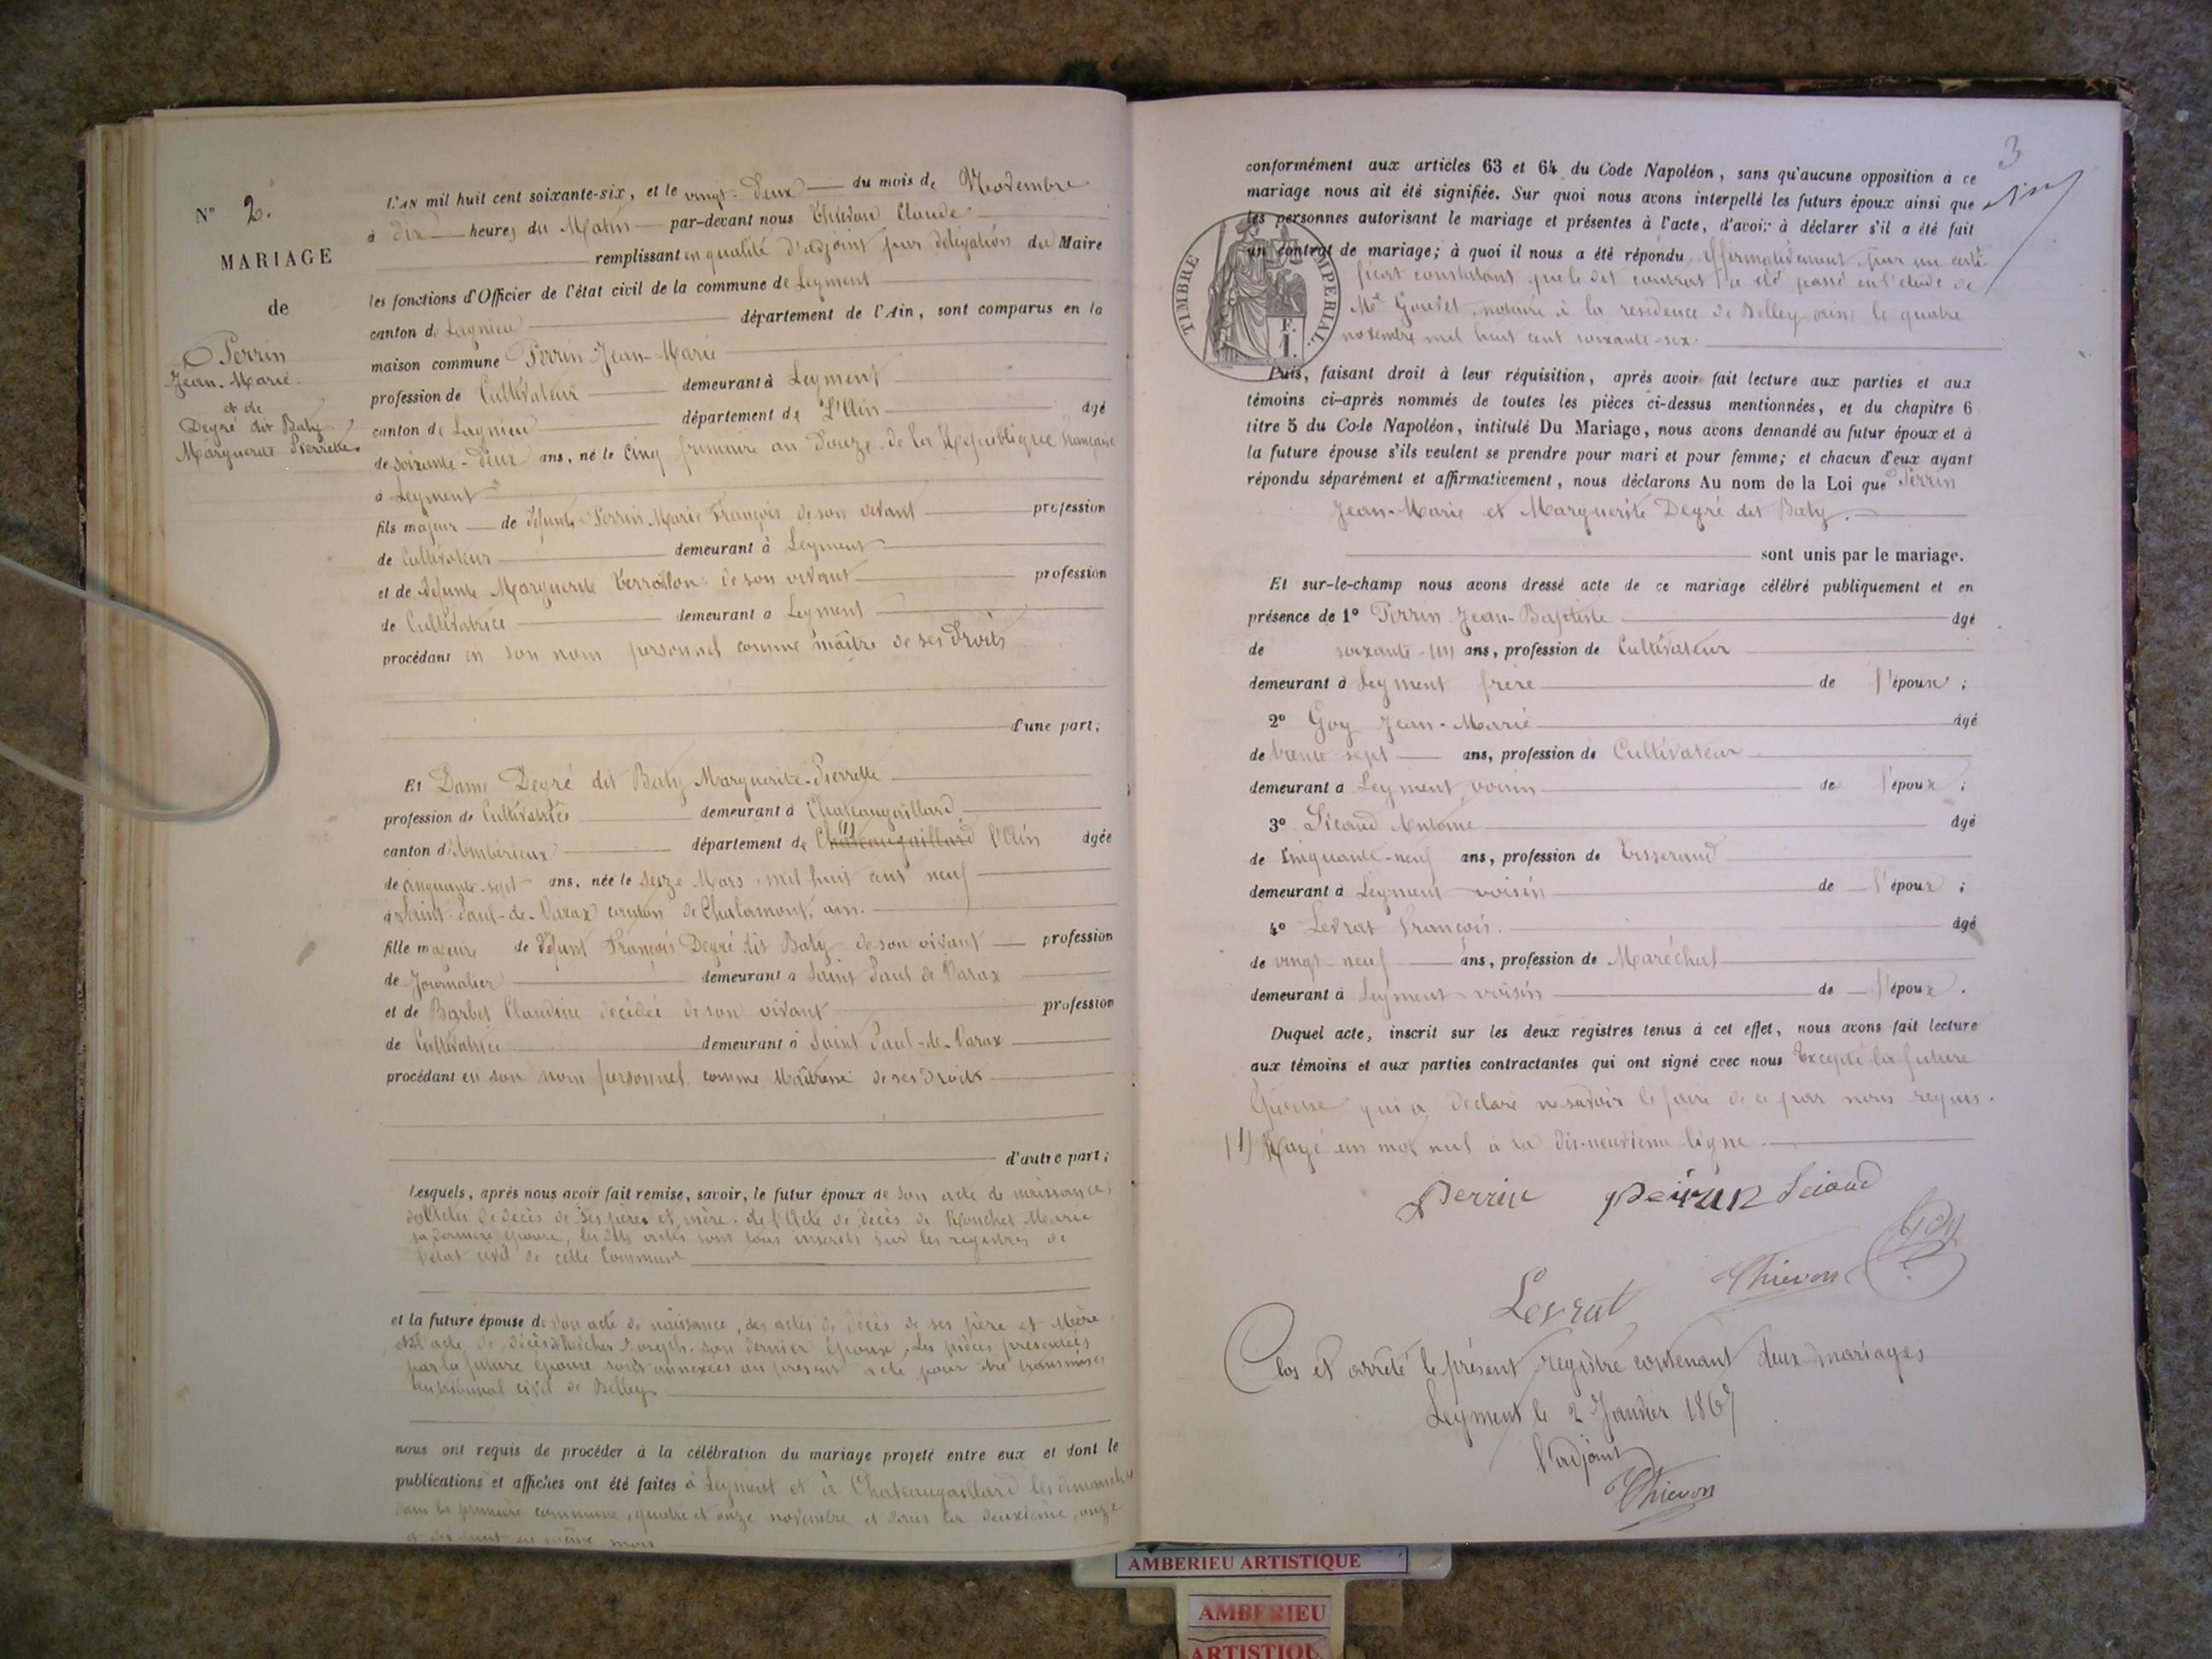 N° 2.
MARIAGE
de
Perrin
Jean-Marie
et de
Degré dit Baty
Marguerite Pierrette.
L'AN mil huit cent soixante-six, et le vingt-deux du mois de Novembre
à dix heures du Matin par-devant nous Thievon Claude
remplissant en qualité d'adjoint par délégation du Maire
les fonctions d'Officier de l'état civil de la commune de Leyment
canton de Lagnieu département de l'Ain, sont comparus en la
maison commune Perrin Jean-Marie
profession de Cultivateur demeurant à Leyment
canton de Lagnieu département de L'Ain âgé
de soixante-deux ans, né le cinq frimaire an Douze de la République française
à Leyment
fils majeur de défunt Perrin Marie François de son vivant profession
de Cultivateur demeurant à Leyment
et de défunte Marguerite Verrollon de son vivant profession
de Cultivatrice demeurant à Leyment
procédant en son nom personnel comme maître de ses Droits
d'une part;
Et Dame Degré dit Baty Marguerite-Pierrette
profession de Cultivatrice demeurant à Chateaugaillard
canton d'Ambérieux département de Châteaugaillard l'Ain âgée
de cinquante-sept ans, née le seize Mars, mil huit cent neuf
à Saint-Paul-de-Varax canton de Chalamont, ain.
fille majeure de défunt François Degré dit Baty de son vivant profession
de Journalier demeurant à Saint Paul de Varax
et de Barbet Claudine décédée de son vivant profession
de Cultivatrice demeurant à Saint Paul-de-Varax
procédant en son nom personnel comme Maîtresse de ses Droits
d'autre part;
Lesquels, après nous avoir fait remise, savoir, le futur époux de son acte de naissance,
des Actes de décès de ses pères et mère. de l'Acte de décès de Marie
sa dernière épouse, les dits actes sont tous inscrits sur les registres de
l'état civil de cette Commune
et la future épouse de son acte de naissance, des actes de décès de ses père et Mère,
et l'acte de décès de Joseph son dernier époux, Les pièces présentées
par la future épouse sont annexées au présent acte pour être transmises
au tribunal civil de Belley
nous ont requis de procéder à la célébration du mariage projeté entre eux et dont le
publications et affiches ont été faites à Leyment et à Chateaugaillard les dimanches
dans la première commune, quatre et onze novembre et dans la deuxième, onze
et dix huit du même mois
3
conformément aux articles 63 et 64 du Code Napoléon, sans qu'aucune opposition à ce
mariage nous ait été signifiée. Sur quoi nous avons interpellé les futurs époux ainsi que
les personnes autorisant le mariage et présentes à l'acte, d'avoir à déclarer s'il a été fait
un contrat de mariage; à quoi il nous a été répondu Affirmativement par un certi-
ficat constatant que le dit contrat a été passé en l'étude de
Me Gouvet, notaire à la résidence de Belley (ain) le quatre
novembre mil huit cent soixante-six.
TIMBRE IMPERIAL
F.
1.
Puis, faisant droit à leur réquisition, après avoir fait lecture aux parties et aux
témoins ci-après nommés de toutes les pièces ci-dessus mentionnées, et du chapitre 6
titre 5 du Code Napoléon, intitulé Du Mariage, nous avons demandé au futur époux et à
la future épouse s'ils veulent se prendre pour mari et pour femme; et chacun d'eux ayant
répondu séparément et affirmativement, nous déclarons Au nom de la Loi que Perrin
Jean-Marie et Marguerite Degré dit Baty.
sont unis par le mariage.
Et sur-le-champ nous avons dressé acte de ce mariage célébré publiquement et en
présence de 1° Perrin Jean-Baptiste âgé
de soixante-un ans, profession de Cultivateur
demeurant à Leyment frère de l'époux;
2° Goy Jean-Marie âgé
de trente sept ans, profession de Cultivateur
demeurant à Leyment, voisin de l'époux;
3° Sicaud Antoine âgé
de cinquante-neuf ans, profession de Tisserand
demeurant à Leyment voisin de l'époux;
4° Levrat François. âgé
de vingt-neuf ans, profession de Maréchal
demeurant à Leyment voisin de l'époux.
Duquel acte, inscrit sur les deux registres tenus à cet effet, nous avons fait lecture
aux témoins et aux parties contractantes qui ont signé avec nous Excepté la future
épouse qui a déclaré ne savoir le faire de ce par nous requis.
(1) Rayé un mot nul à la dix-neuvième ligne
Perrin Perrin Sicaud
Goy
Thievon
Levrat
Clos et arrêté le présent registre contenant deux mariages
Leyment le 2 Janvier 1867
l'adjoint
Thievon
AMBERIEU ARTISTIQUE
AMBERIEU
ARTISTIQU